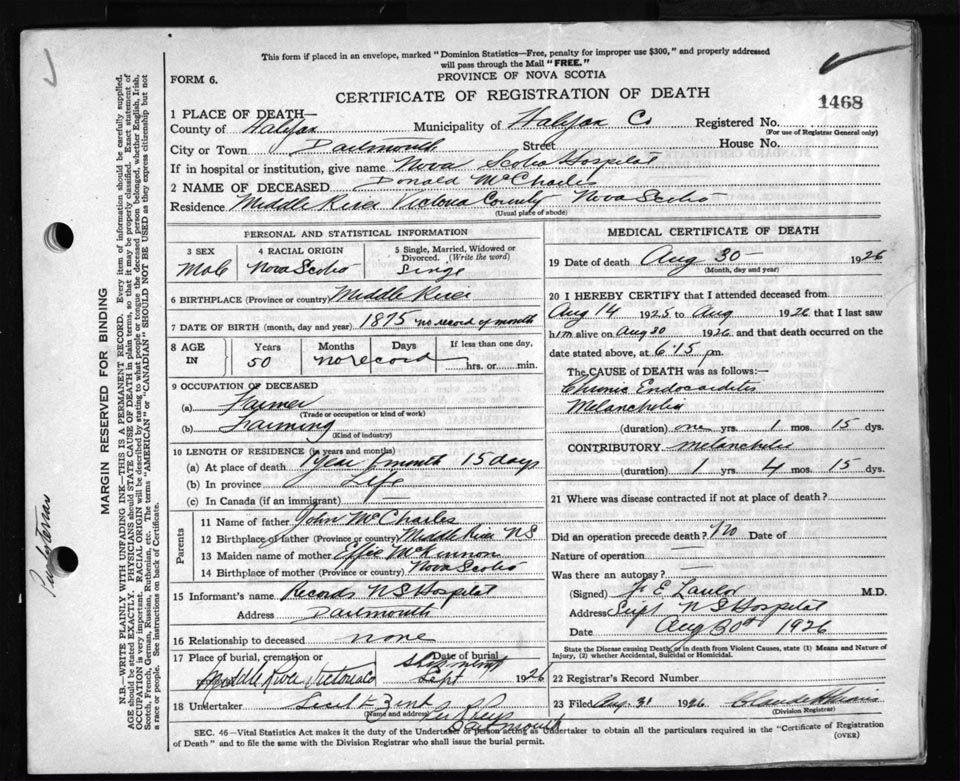 This form if placed in an envelope, marked "Dominion Statistics—Free, penalty for improper use $300," and properly addressed
will pass through the Mail "FREE."
FORM 6.
PROVINCE OF NOVA SCOTIA
CERTIFICATE OF REGISTRATION OF DEATH
1468
1 PLACE OF DEATH—
County of Halifax Municipality of Halifax Co Registered No.
(For use of Registrar General only)
City or Town Dartmouth Street House No.
If in hospital or institution, give name Nova Scotia Hospital
2 NAME OF DECEASED Donald McCharles
Residence Middle River Victoria County Nova Scotia
(Usual place of abode)
PERSONAL AND STATISTICAL INFORMATION
3 SEX 4 RACIAL ORIGIN 5 Single, Married, Widowed or
Divorced. (Write the word)
Male Nova Scotia Single
6 BIRTHPLACE (Province or country) Middle River
7 DATE OF BIRTH (month, day and year) 1875 no record of month
8 AGE IN Years Months Days If less than one day,
50 no record hrs. or min.
9 OCCUPATION OF DECEASED
(a) Farmer
(Trade or occupation or kind of work)
(b) Farming
(Kind of industry)
10 LENGTH OF RESIDENCE (in years and months)
(a) At place of death 1 year 1 month 15 days
(b) In province Life
(c) In Canada (if an immigrant)
Parents
11 Name of father John McCharles
12 Birthplace of father (Province or country) Middle River N.S
13 Maiden name of mother Effie McKinnon
14 Birthplace of mother (Province or country) Nova Scotia
15 Informant's name Records N S Hospital
Address Dartmouth
16 Relationship to deceased none
17 Place of burial, cremation or Date of burial
Middle River Victoria Co Shipment Sept 1926
18 Undertaker
(Name and address)
Dartmouth
MEDICAL CERTIFICATE OF DEATH
19 Date of death Aug 30 1926
(Month, day and year)
20 I HEREBY CERTIFY that I attended deceased from
Aug 14 1925 to Aug 1926 that I last saw
him alive on Aug 30 1926 and that death occurred on the
date stated above, at 6.15 pm.
The CAUSE of DEATH was as follows:—
Chronic Endocarditis
Melancholia
(duration) one yrs. 1 mos. 15 dys.
CONTRIBUTORY Melancholia
(duration) 1 yrs. 4 mos. 15 dys.
21 Where was disease contracted if not at place of death?
Did an operation precede death? No Date of
Nature of operation
Was there an autopsy?
(Signed) F E Lawlor M.D.
Address Supt N S Hospital
Date Aug 30th 1926
State the Disease causing Death, or in death from Violent Causes, state (1) Means and Nature of
Injury, (2) whether Accidental, Suicidal or Homicidal.
22 Registrar's Record Number
23 Filed Aug. 31 1926
(Division Registrar)
SEC. 46—Vital Statistics Act makes it the duty of the Undertaker or person acting as Undertaker to obtain all the particulars required in the "Certificate of Registration
of Death" and to file the same with the Division Registrar who shall issue the burial permit.
(OVER)
MARGIN RESERVED FOR BINDING
N.B.—WRITE PLAINLY WITH UNFADING INK—THIS IS A PERMANENT RECORD. Every item of information should be carefully supplied.
AGE should be stated EXACTLY. PHYSICIANS should STATE CAUSE OF DEATH in plain terms, so that it may be properly classified. Exact statement of
OCCUPATION is very important. RACIAL ORIGIN will be described by stating to what people or tongue the deceased person belonged, whether English, Irish,
Scotch, French, German, Russian, Ruthenian, etc. The terms "AMERICAN" or "CANADIAN" SHOULD NOT BE USED as they express citizenship but not
a race or people. See instructions on back of Certificate.
Presbyterian